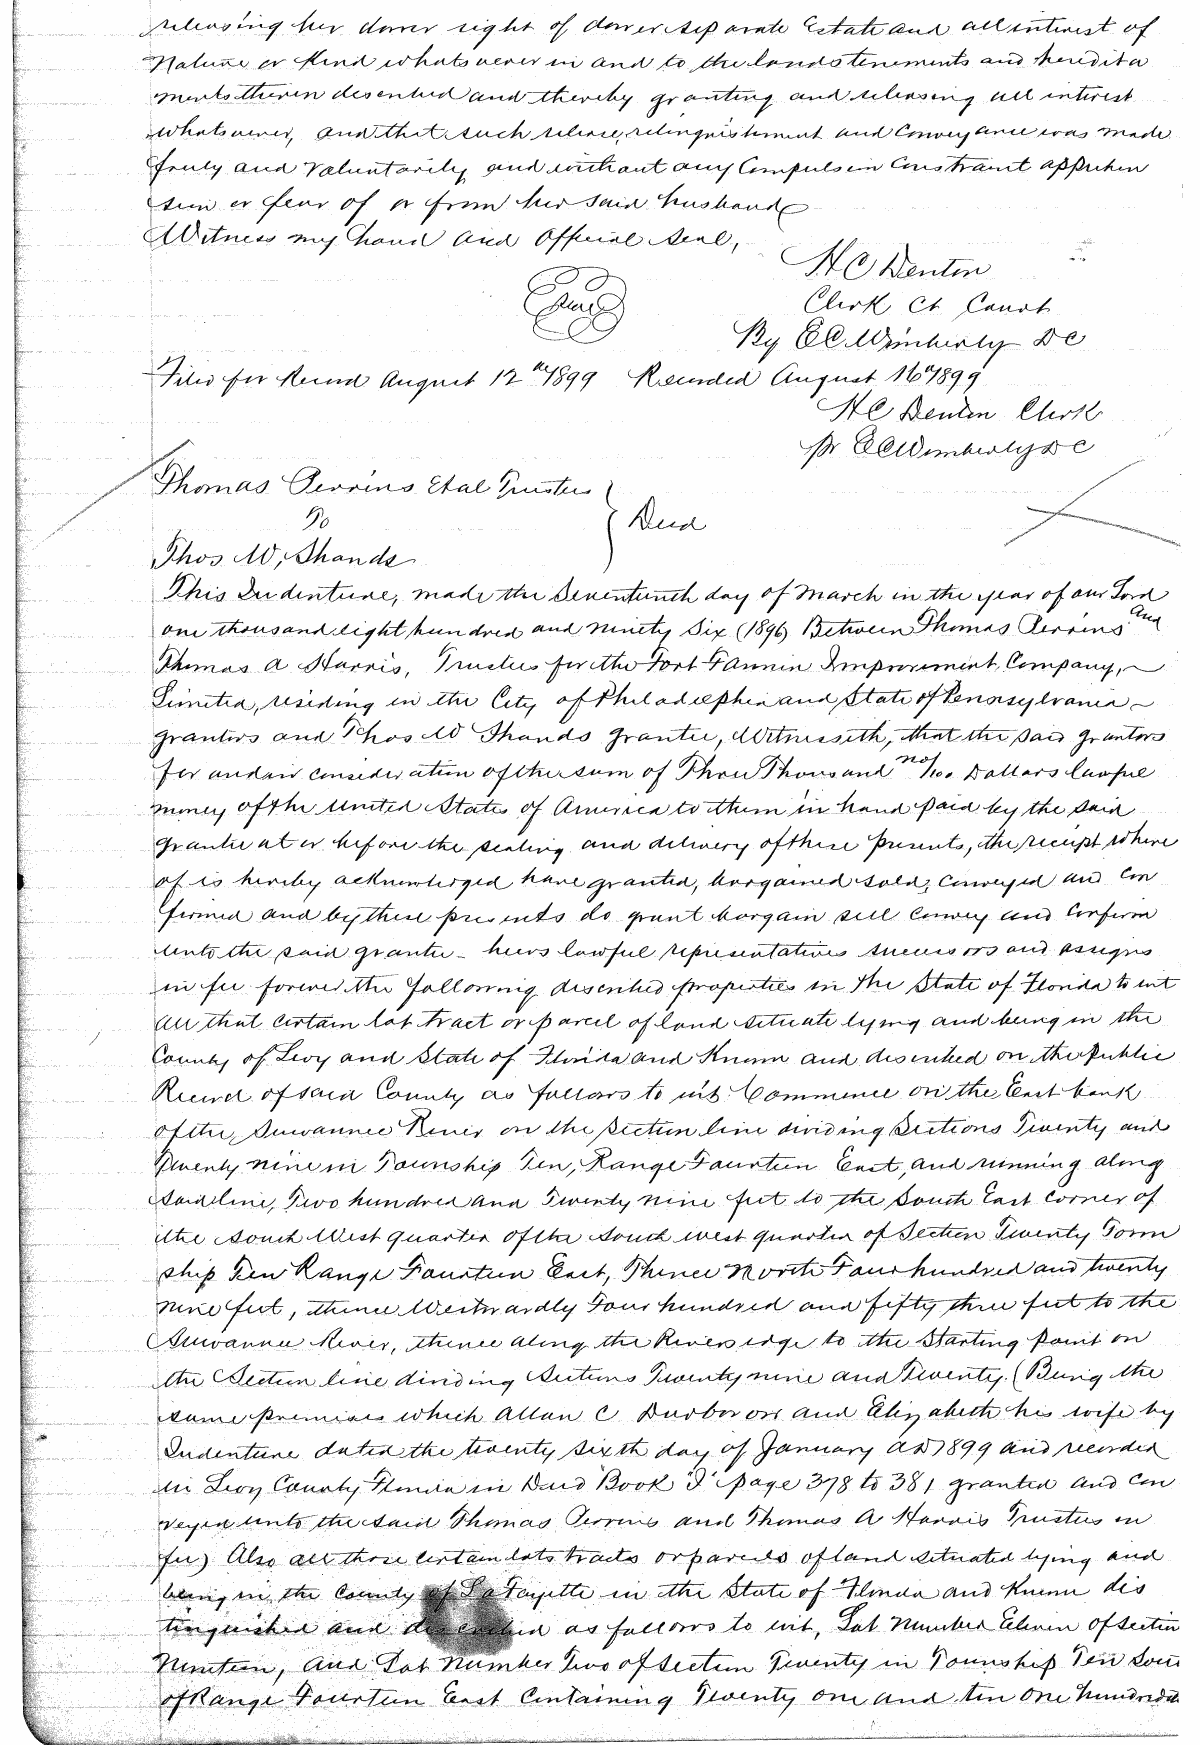 releasing her dower right of dower separate Estate and all interest of
Nature or Kind whatsoever in and to the lands tenements and heredita
ments therein described and thereby granting and releasing all interest
whatsoever, and that such release, relinquishment and Conveyance was made
freely and Voluntarily and without any Compulsion Constraint apprehen
sion or fear of or from her said husband
Witness my hand and Official Seal,
H C Denton
Clerk Ct Court
By E C Wimberly D C
Filed for Record August 12th 1899 Recorded August 16th 1899
H C Denton Clerk
pr E C Wimberly D C
Thomas Perrins Etal Trustees
To
Deed
Thos. W, Shands
This Indenture, made the Seventeenth day of March in the year of our Lord
one thousand eight hundred and ninety Six (1896) Between Thomas Perrins and
Thomas A Harris, Trustees for the Fort Fannin Improvement Company,
Limited, residing in the City of Philadelphia and State of Pennsylvania
grantors and Thos W Shands Grantee, Witnesseth, that the said grantors
for and in consideration of the sum of Three Thousand no/100 Dollars lawful
money of the United States of America to them in hand paid by the said
grantee at or before the sealing and delivery of these presents, the receipt where
of is hereby acknowledged have granted, bargained sold, Conveyed and Con
firmed and by these presents do grant bargain sell Convey and Confirm
unto the said grantee heirs lawful representatives successors and assigns
in fee forever the following described properties in the State of Florida to wit
All that certain lot tract or parcel of land situate lying and being in the
County of Levy and State of Florida and Known and described on the Public
Record of said County as follows to wit Commence on the East bank
of the Suwannee River on the section line dividing Sections Twenty and
Twenty nine in Township Ten, Range Fourteen East, and running along
Said line, Two hundred and Twenty nine feet to the South East Corner of
the South West quarter of the South west quarter of Section Twenty Town
ship Ten Range Fourteen East, Thence North Four hundred and twenty
nine feet, thence Westwardly Four hundred and fifty three feet to the
Suwannee River, thence along the Rivers edge to the Starting Point on
the Section line dividing Sections Twenty nine and Twenty. (Being the
same premises which Allan C Durborow and Elizabeth his wife by
Indenture dated the twenty sixth day of January AD 1899 and recorded
in Levy County Florida in Deed Book page 378 to 381 granted and Con
veyed unto the said Thomas Perrins and Thomas A Harris Trustees in
fee) Also all those certain lots tracts or parcels of land situated lying and
being in the County of LaFayette in the State of Florida and Known dis
tinguished and described as follows to wit, Lot Number Eleven of Section
Nineteen, And Lot Number Two of Section Twenty in Township Ten Sou
of Range Fourteen East Containing Twenty one and ten One hundredth